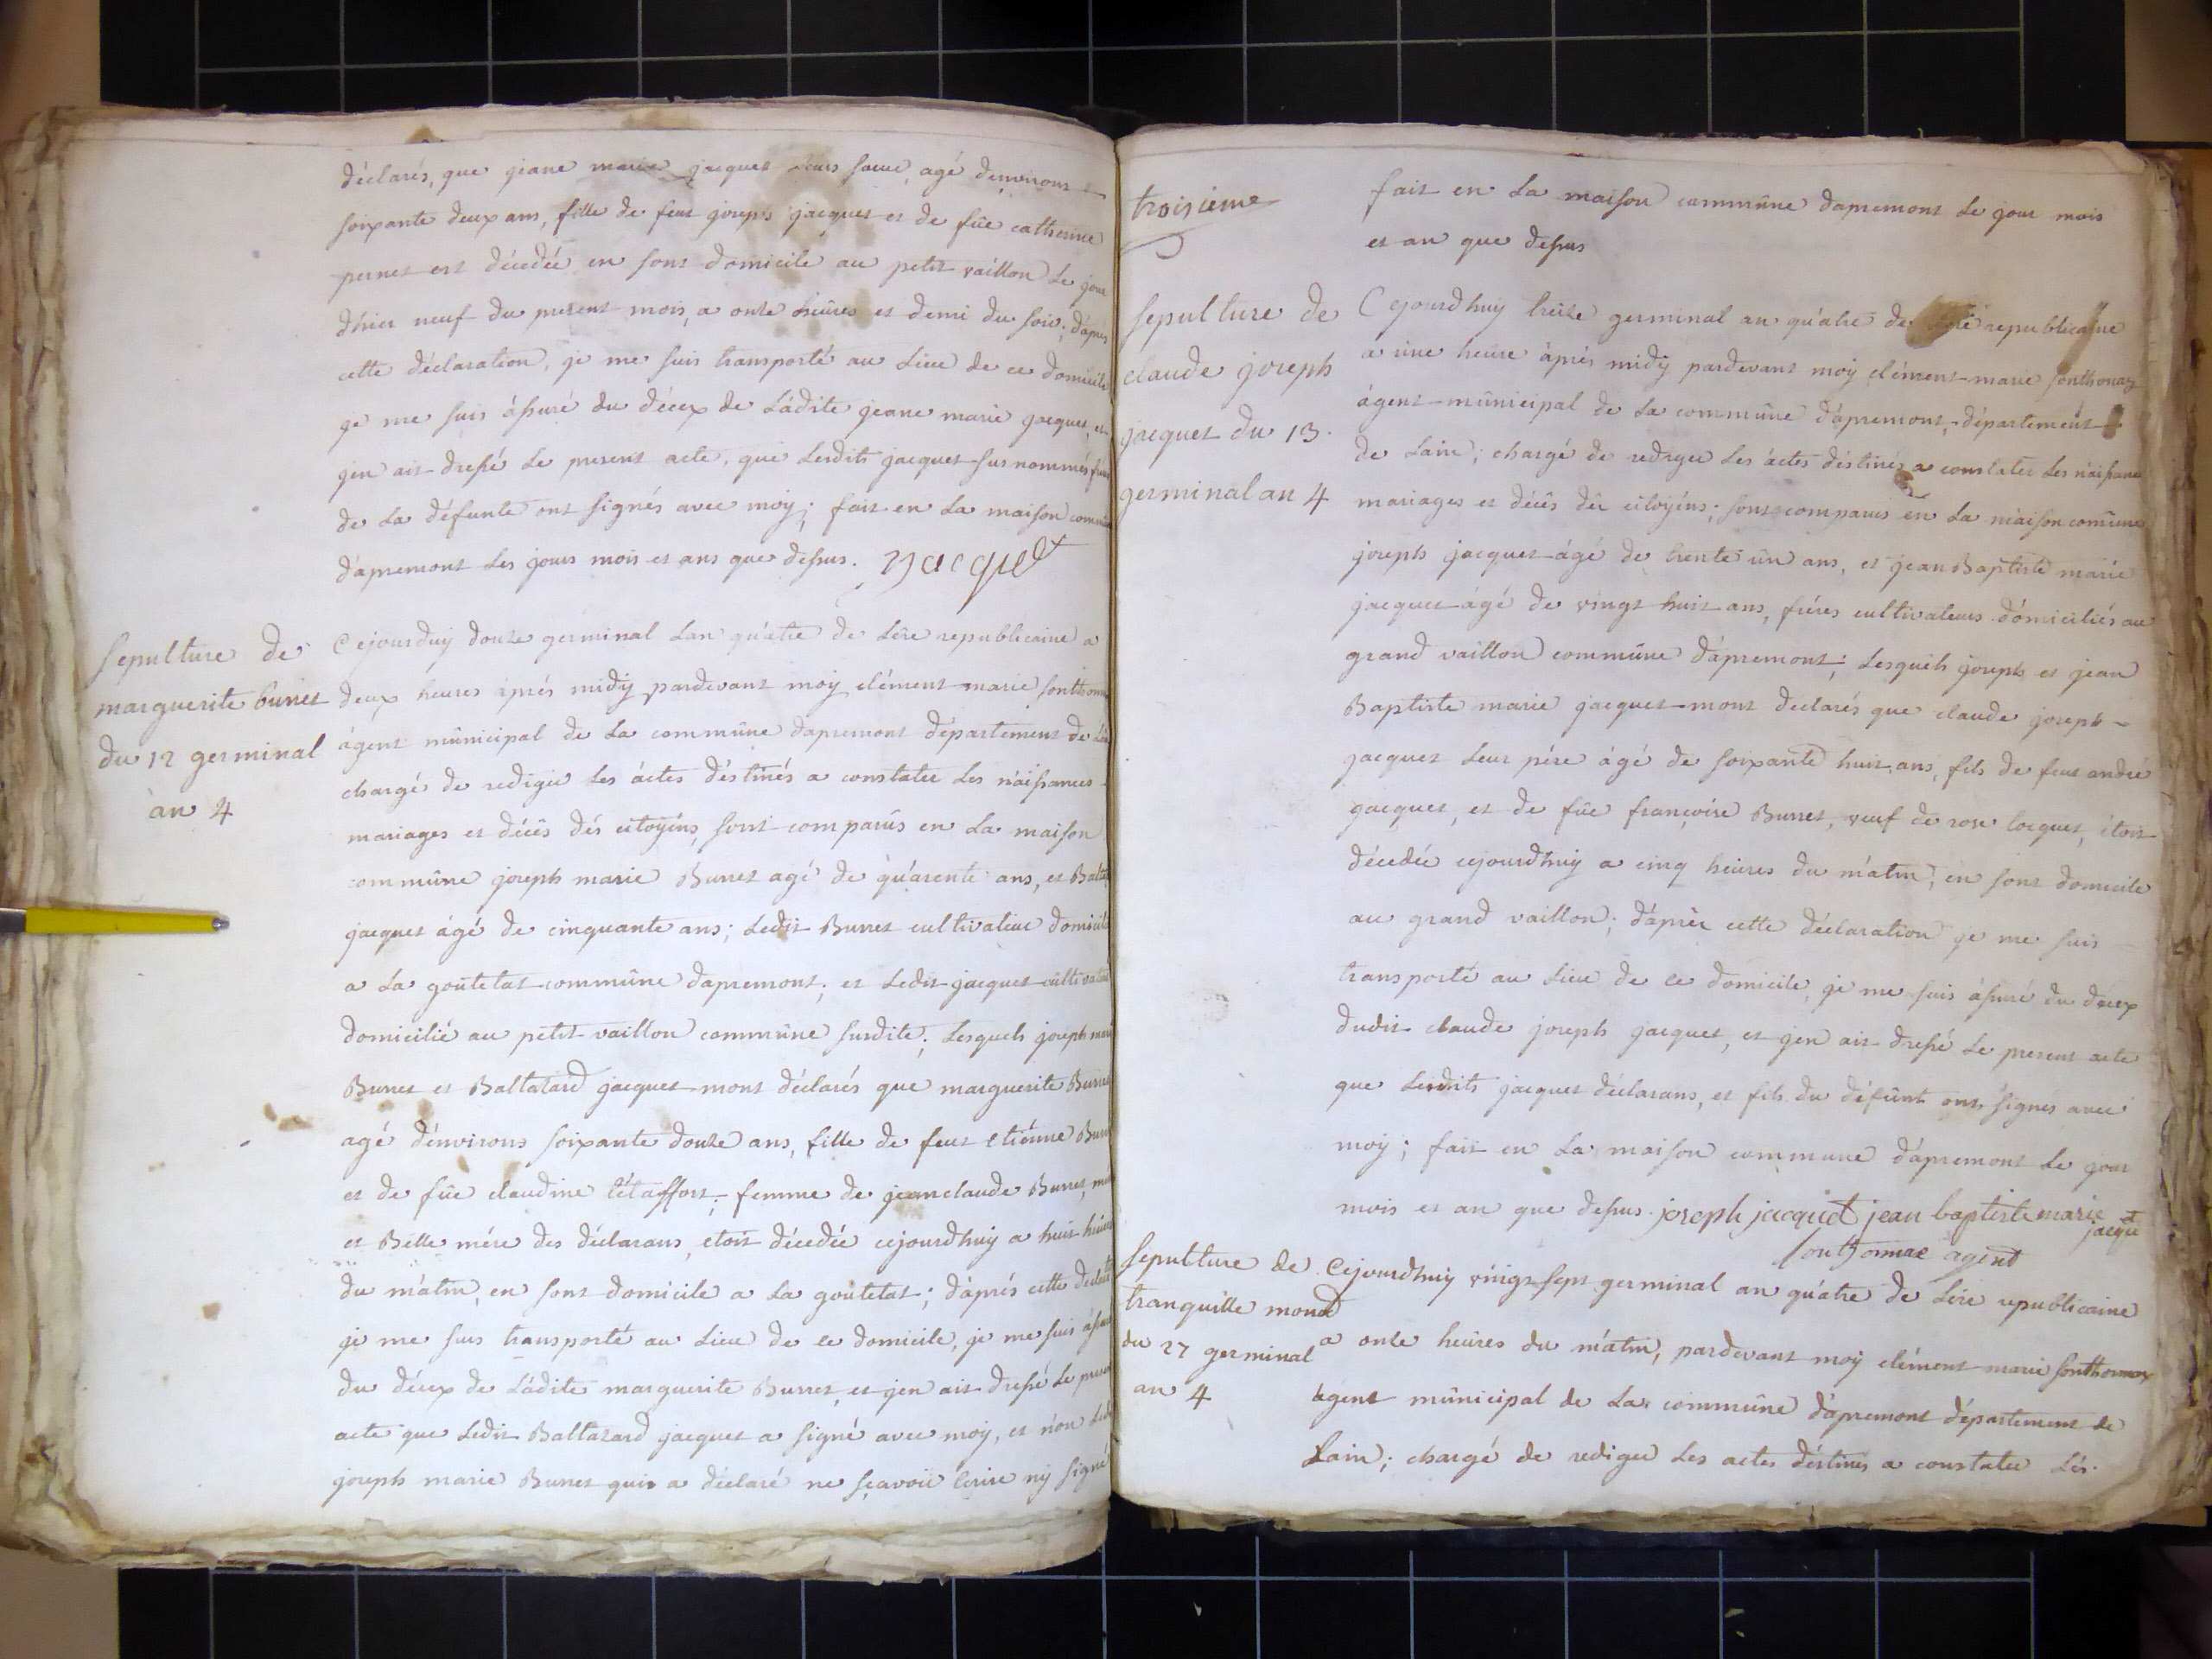 déclarés, que jeane marie jacquet leurs sœur, agé denvirons
soixante deux ans, fille de feut joseph jacquet et de fûe catherine
pernet est décedée en sont domicile au petit vaillon le jour
dhier neuf du present mois, a onze heûres et demi du soir; dápres
cette déclaration, je me suis transporté au lieu de ce domicile
je me suis ássuré du décex de láditte jeane marie jacquet, et
jen ait dressé le present acte, que lesdits jacquet surnommés frères
de la défunte ont signés avec moÿ; fait en la maison commûne
dápremont les jours mois et ans que dessus. jacquet
sepulture de
marguerite burret
du 12 germinal
an 4
Cejourdhuÿ douze germinal lan quátre de lére republicaine a
deux heures áprés midÿ pardevant moÿ clément marie sonthonnax
ágent mûnicipal de la commûne dápremont département de láin
chargé de redigér les áctes déstinés a constater les náissances
mariages et décês dés citoÿéns, sont comparûs en la maison
commûne joseph marie Burret agé de quárente ans, et Baltazard
jacquet ágé de cinquante ans; ledit Burret cultivateur domicilié
a la goûtetat commûne dápremont; et ledit jacquet cûltivateur
domicilié au petit vaillon commûne susdite; lesquels joseph marie
Burret et Baltazard jacquet mont déclarés que marguerite Burret
agé dénvirons soixante douze ans, fille de feut etiénne Burret
et de fûe claudine tétaffort; femme de jean claude Burret, mére
et Bélle mére des déclarans, etoit décedée cejourdhuÿ a huit heûres
du mátin, en sont domicile a la goûtetat; dáprés cette déclaration
je me suis transporté au lieu de ce domicile, je me suis ássuré
du décex de láditte marguerite Burret, et jen ait dressé le present
acte que ledit Baltazard jacquet a signé avec moÿ, et nón ledit
joseph marie Burret quit a déclaré ne sçavoir écrire nÿ signé
troisieme
fait en la maison commûne dápremont le jour mois
et an que dessus
sepulture de
claude joseph
jacquet du 13
germinal an 4
Cejourdhuÿ treize germinal an quátre de lére republicaine
a ûne heûre áprés midÿ pardevant moÿ clément marie sonthonax
ágent mûnicipal de la commûne dápremont, département
de láin; chargé de redÿger les áctes déstinés a constater les náissances
mariages et décês dês citoÿéns; sont comparus en la máison comûne
joseph jacquet ágé de trente ûn ans, et jean Baptiste marie
jacquet ágé de vingt huit ans, fréres cultivateurs dómiciliés au
grand vaillon commûne dápremont; lesquels joseph et jean
Baptiste marie jacquet mont declarés que claude joseph
jacquet leur pére ágé de soixante huit ans, fils de feut andré
jacquet, et de fûe françoise Burret, veuf de rose locquet, étoit
décedée cejourdhuÿ a cinq heûres du mátin, en sont domicile
au grand vaillon; dáprês cette déclaration je me suis
transporté au lieu de ce domicile, je me suis ássuré du décex
dudit claude joseph jacquet, et jen ait dressé le present acte
que lesdits jacquet déclarans, et fils du défûnt ont signés avec
moÿ; fait en la maison commune dápremont le jour
mois et an que dessus. joseph jacquet jean baptiste marie
jacquet
sonthonnax agent
sepulture de
tranquille monod
du 27 germinal
an 4
Cejourdhuÿ vingt sept germinal an quátre de lére republicaine
a onze heûres du mátin, pardevant moÿ clément marie sonthonnax
agent mûnicipal de la commûne dápremont département de
lain; chargé de rediger les actes déstinés a constater lés